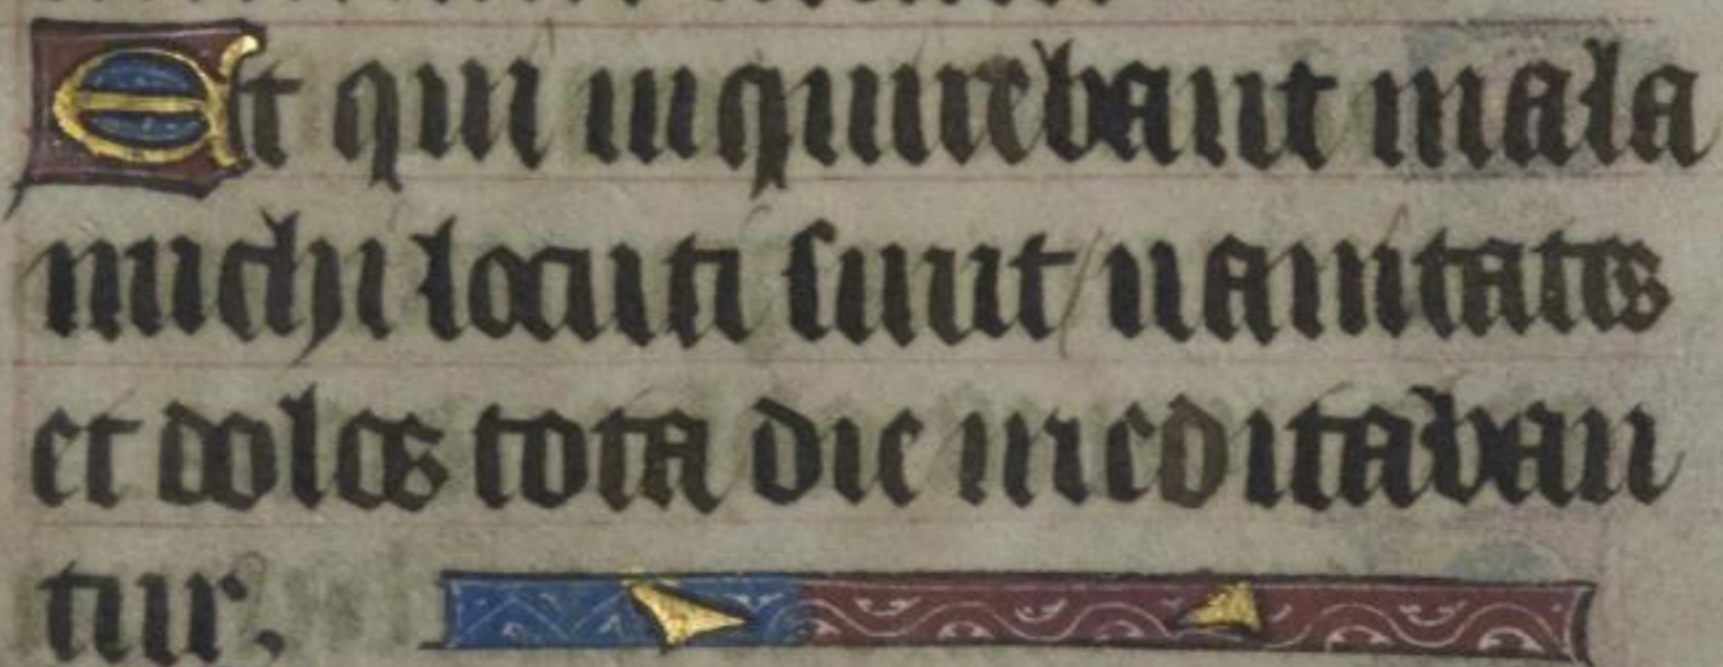 Et qui inquirebant mala
michi locuti sunt uanitates
et dolos tota die meditaban
tur.